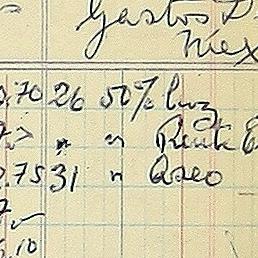 Gastos D
Mex
.70 26 50% luz
" " Renta E
.75 31 " Aseo
.10